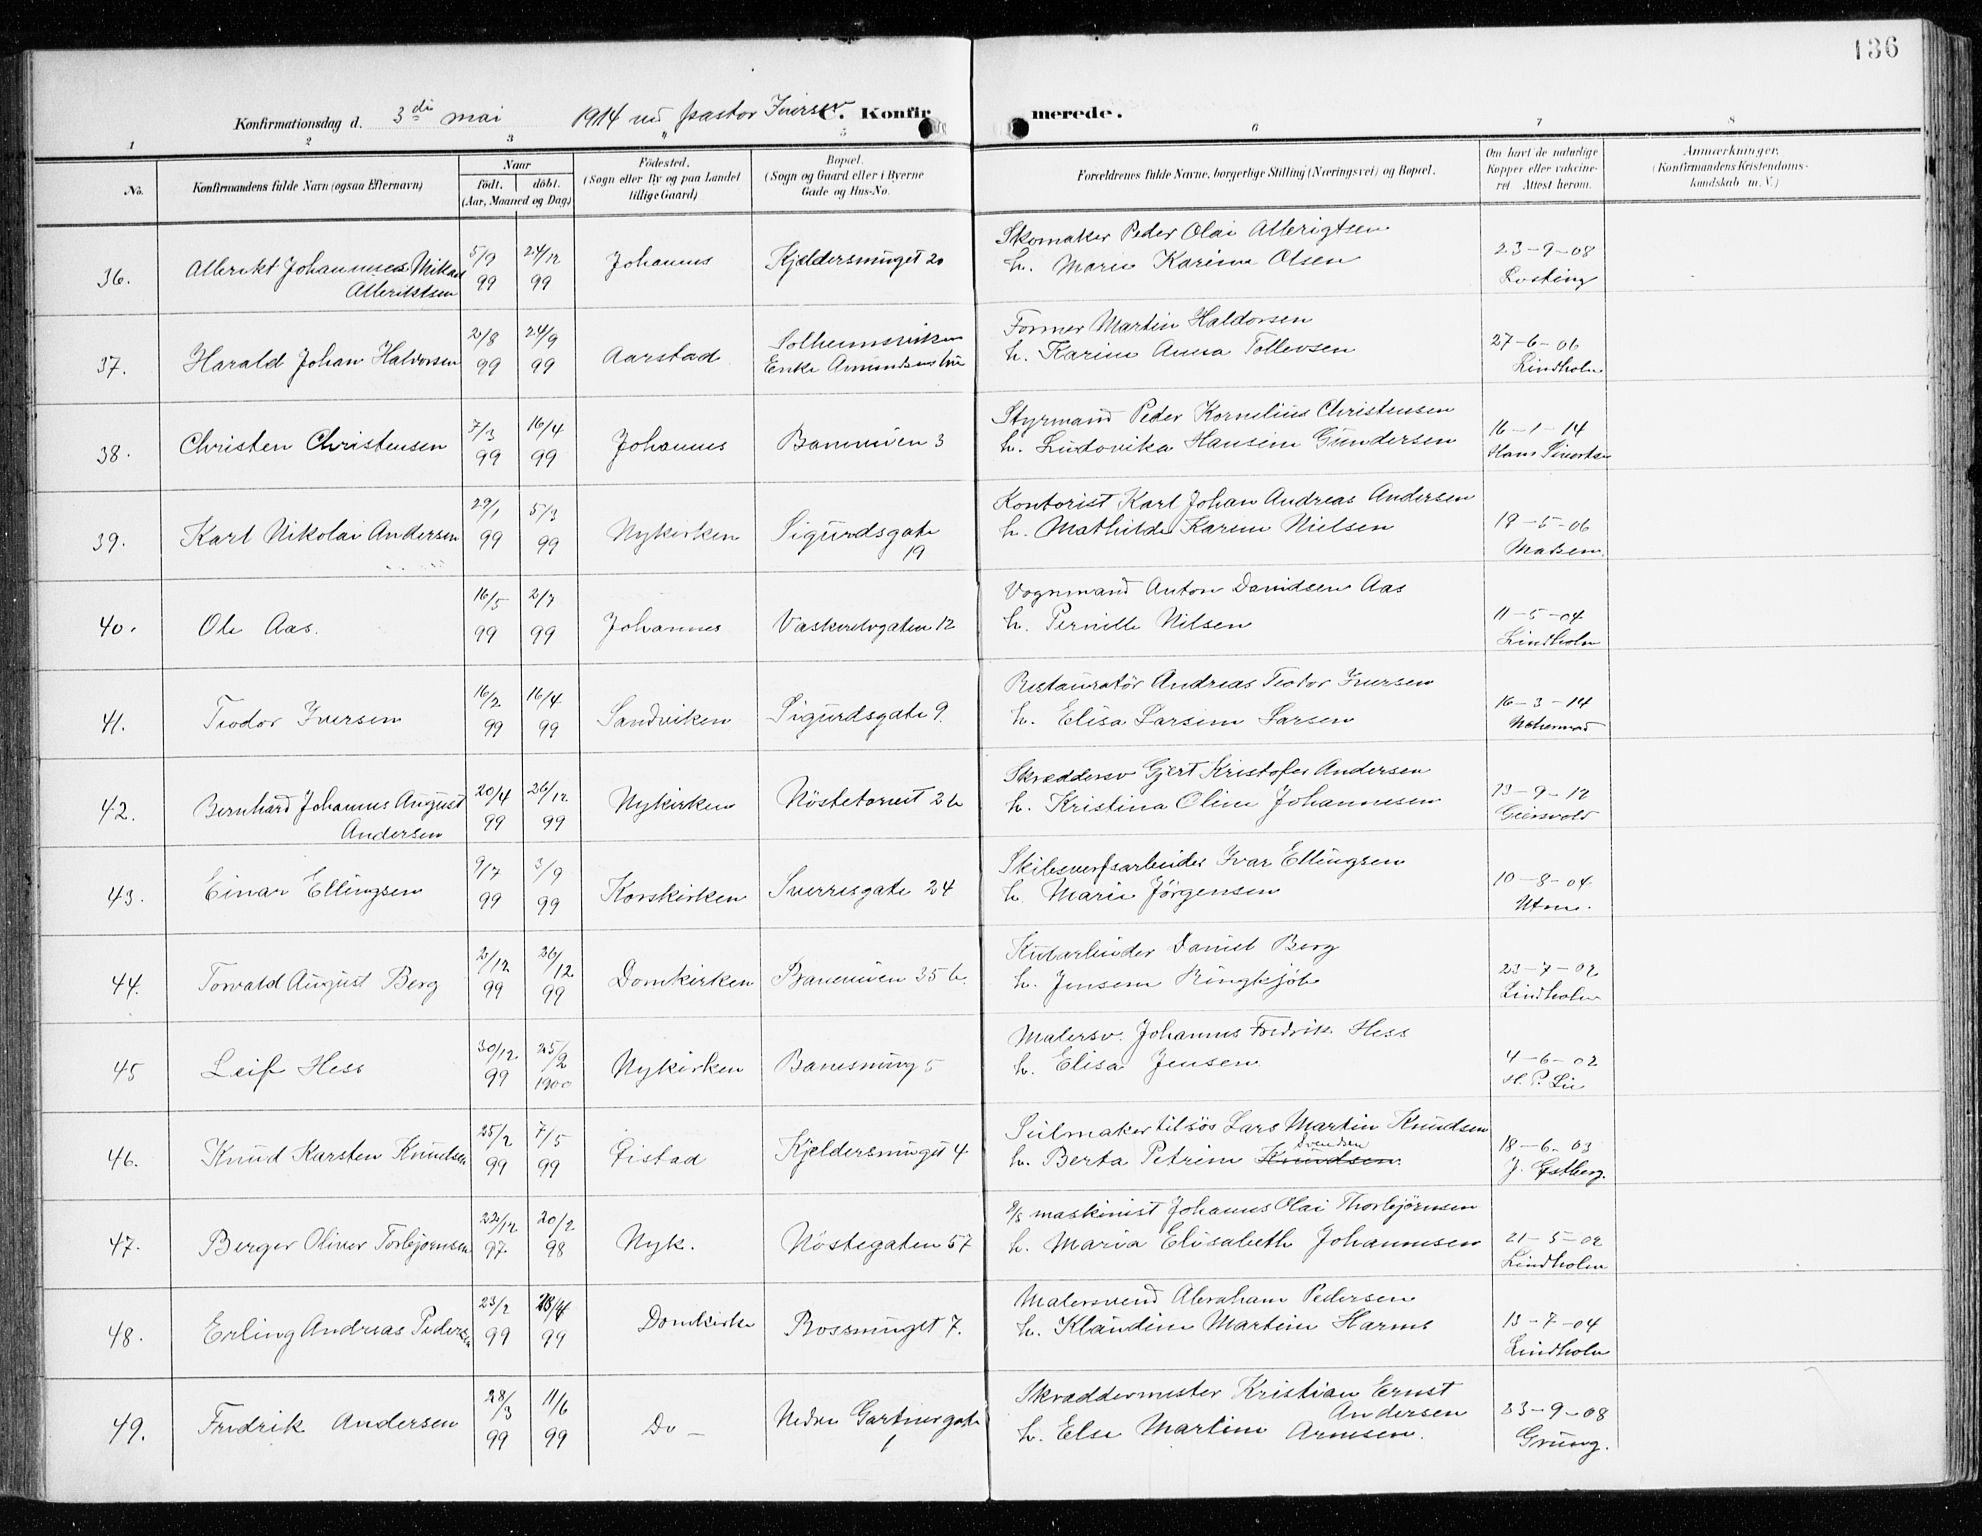 136
Konfirmationsdag d. 3die mai 1914 ved pastor Iversen C. Konfir merede.
1 2 3 5 6 7 8
No. Konfirmandens fulde Navn (ogsaa Efternavn) Naar født. døbt. (Aar, Maaned og Dag) Fødested. (Sogn eller By og paa Landet tillige Gaard) Bopæl. (Sogn og Gaard eller i Byerne Gade og Hus-No. Forældrenes fulde Navne, borgerlige Stilling (Næringsvei) og Bopæl. Om havt de naturlige Kopper eller vakcineret. Attest herom. Anmærkninger. (Konfirmandens Kristendomskundskab m. V.)
Skomaker Peder Olai Albrigtsen
36. Albrikt Johannes Mikal 5/9 99 24/12 99 Johannes Kjeldersmuget 20 h. Marie Karine Olsen 23-9-08
Albriktsen
Former Martin Haldorsen
37. Harald Johan Halvorsen 2/8 99 24/9 99 Aarstad Solheimsviken h. Karine Anna Tollevsen 27-6-06
Enke Amundsens hus Lindholm
Styrmand Peder Kornelius Christensen
38. Christen Christensen 7/3 99 16/4 99 Johannes Baneveien 3 h. Ludovika Hansine Gundersen 16-1-14
Hans Sivertsen
Kontorist Karl Johan Andreas Andersen
39. Karl Nikolai Andersen 29/1 99 5/3 99 Nykirken Sigurdsgate 19 h. Mathilde Karine Nielsen 19-5-06
Madsen
Vognmand Anton Davidsen Aas
40. Ole Aas. 16/5 99 2/7 99 Johannes Vaskerelvgaten 12 h. Pernille Nilsen 11-5-04
Lindholm
Restauratør Andreas Teodor Iversen
41. Teodor Iversen 16/2 99 16/4 99 Sandviken Sigurdsgate 9. h. Elisa Larsine Larsen 16-3-14
Skræddersv Gjert Kristofer Andersen
42. Bernhard Johannes August 20/4 99 26/12 99 Nykirken Nöstetorvet 2b h. Kristina Oline Johannesen 13-9-12
Andersen Geirsvold
Skibsverfsarbeider Ivar Ellingsen
43. Einar Ellingsen 9/7 99 3/9 99 Korskirken Sverresgate 24 h. Marie Jörgensen 10-8-04
Utne.
Daniel Berg
44. Torvald August Berg 2/12 99 26/12 99 Domkirken Baneveien 35 b. h. Jensine Ringkjøb 23-7-02
Lindholm
Malersv. Johannes Fredrik Hess
45 Leif Hess 30/12 99 25/2 1900 Nykirken Banesmug 5 h. Elisa Jensen 4-6-02
H. P. Lie
Seilmaker tilsös Lars Martin Knudsen
46. Knud Karsten Knudsen 25/2 99 7/5 99 Eistad Kjeldersmuget 4. h. Berta Petrine Knudsen Svendsen 18-6-03
J. Østberg.
D/s maskinist Johannes Olai Thorbjörnsen
47. Berger Oliver Torbjørnsen 22/12 97. 20/2 98 Nyk. Nöstegaten 57 h. Maria Elisabeth Johannesen 21-5-02
Lindholm
Malersvend Abraham Pedersen
48. Erling Andreas Pedersen 23/2 99 23/4 99 Domkirke Rossmuget 7. h. Klaudine Martine Harms 13-7-04
Lindholm
Skræddermester Kristian Ernst Andersen
49. Fredrik Andersen 28/3 99 11/6 99 Do — Nedre Gartnergate 1 h. Else Martine Arnesen. 23-9-08
Grung.